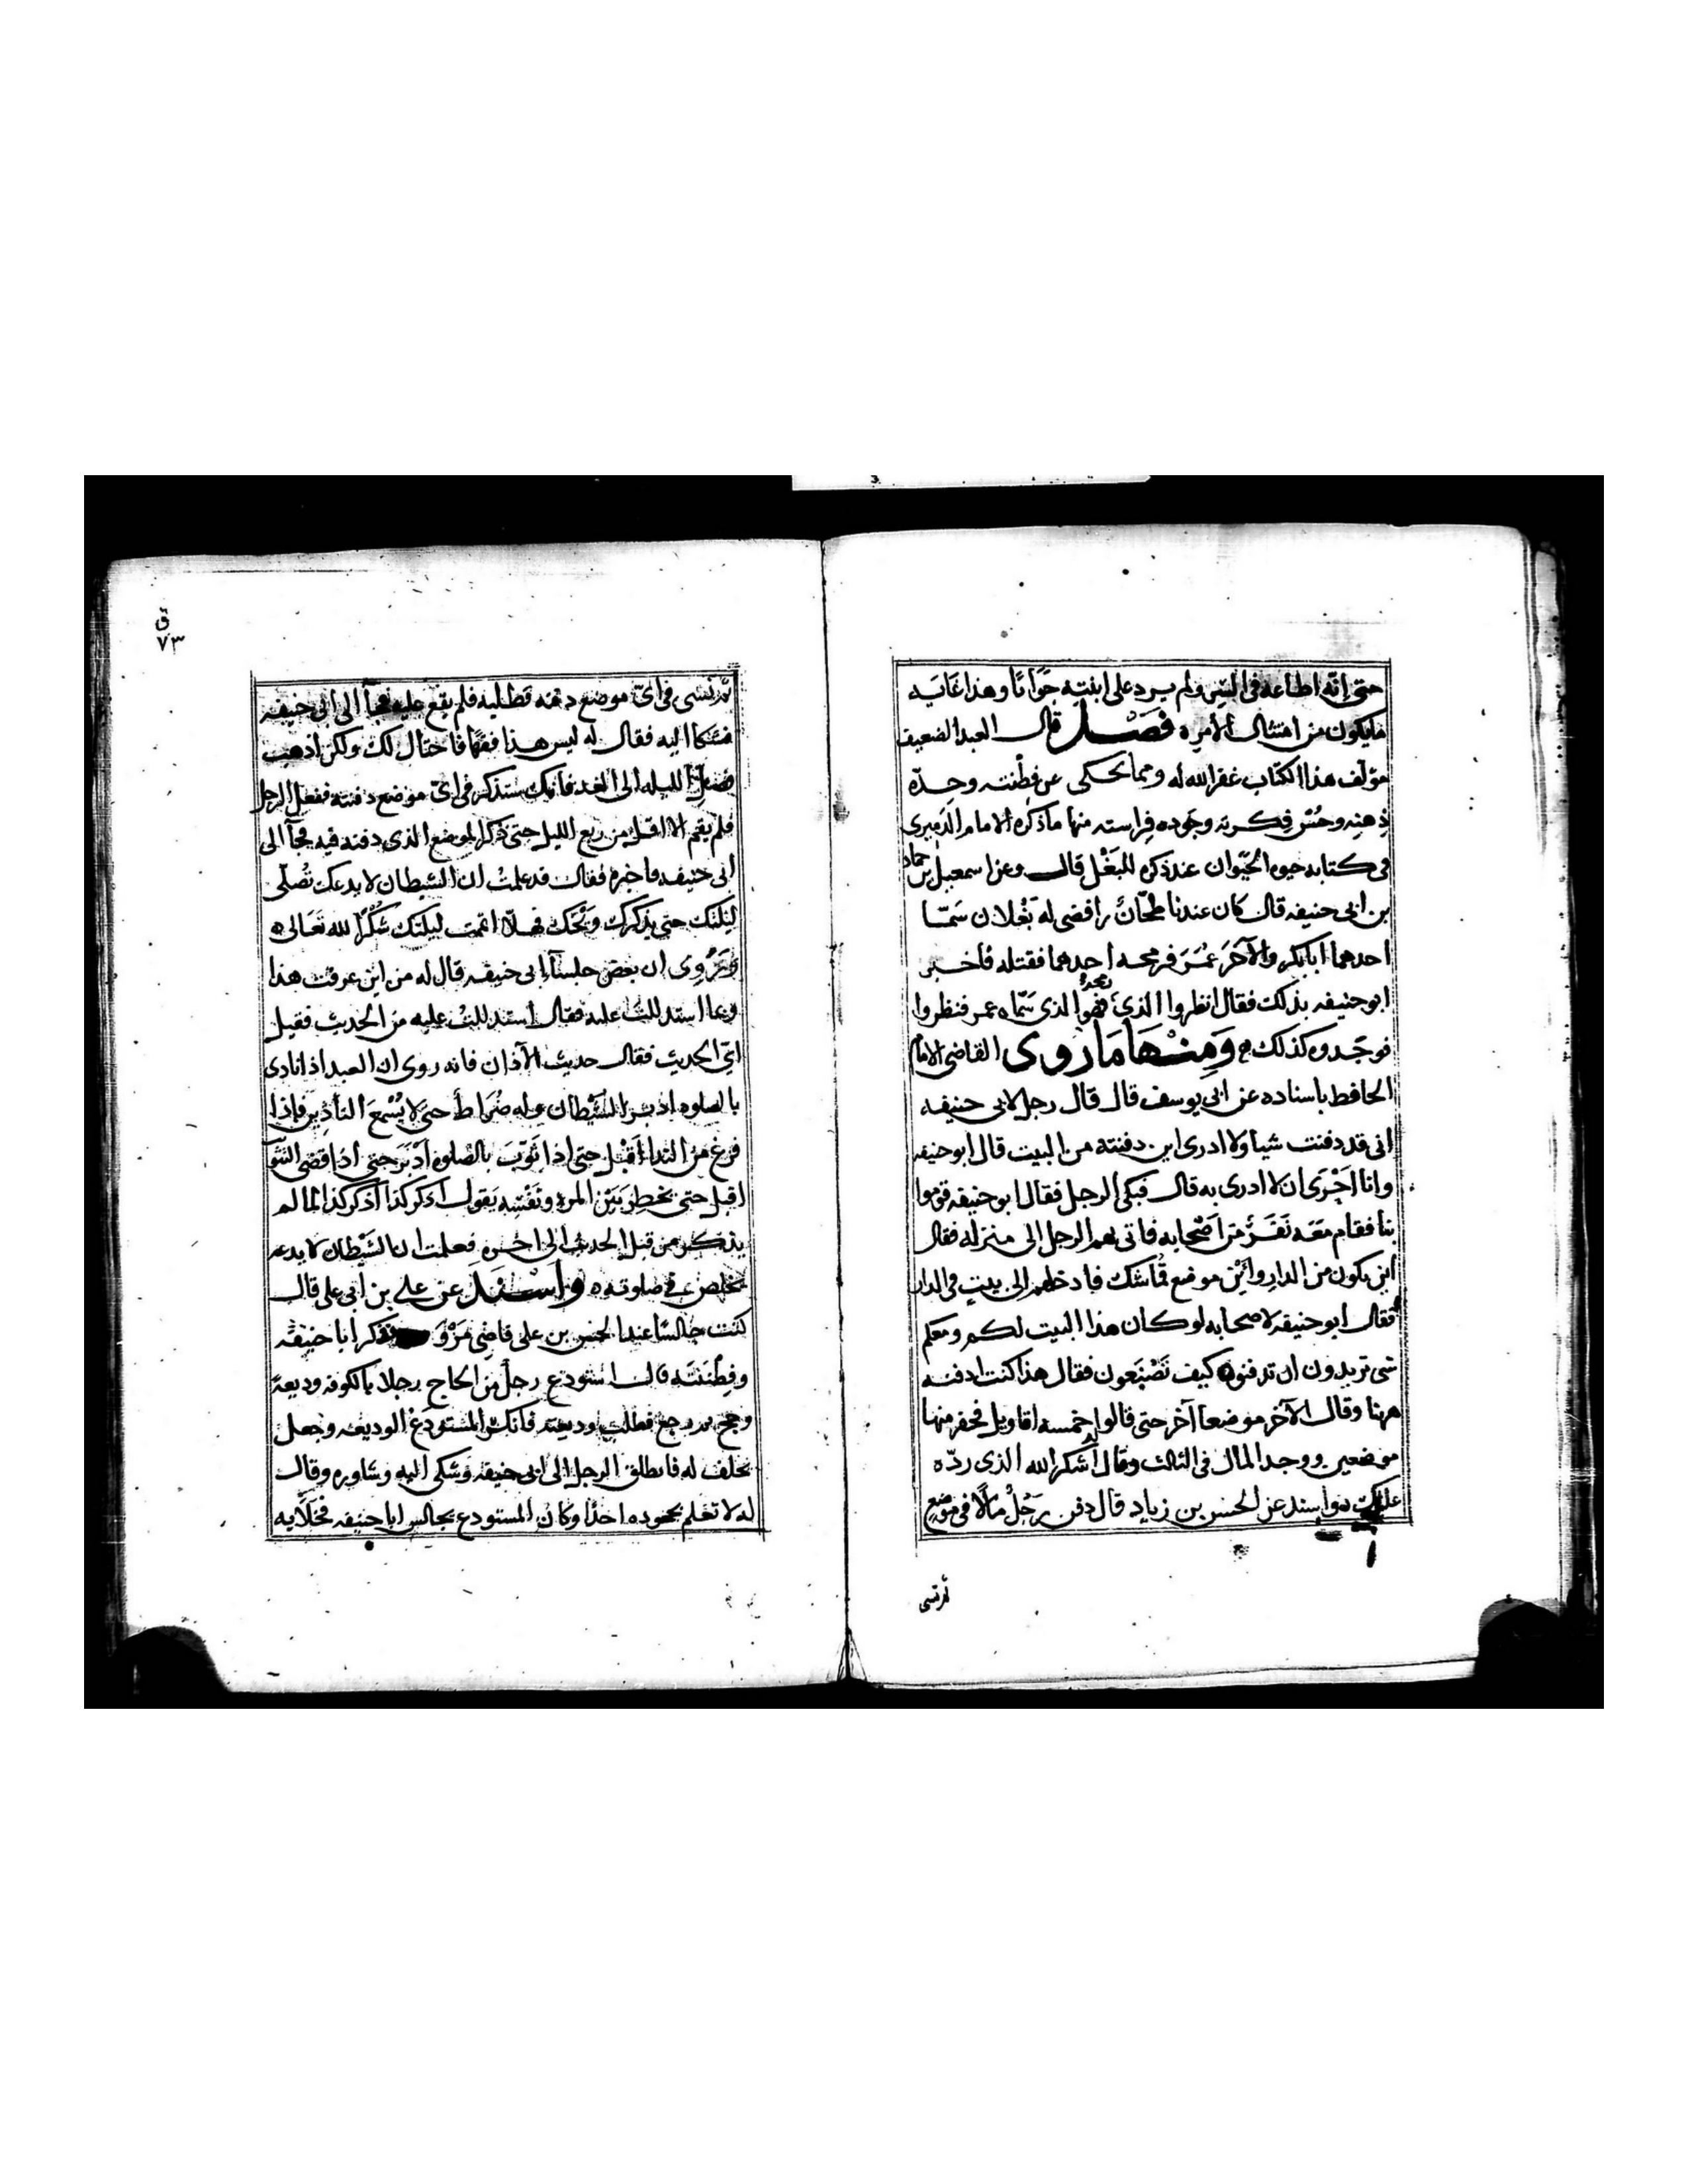 حتى إنه اطاعه في السر ولم يرد على ابنته جوابا وهذا غايه
مايكون من امتثال الأمر ه فصل قال العبد الضعيف
مؤلف هذا الكتاب غفر الله له ومما يحكى عن فطنته وحدّه
ذهنه وحسن فكرته وجوده فراسته منها ما ذكره الامام الدميرى
في كتابه حيوه الحيوان عند ذكره للبغل قال وعن اسمعيل بن حماد
بن ابى حنيفه قال كان عندنا طحان رافضى له بغلان سمّا
احدهما ابابكر والآخر عمر فرمحه احدهما فقتله فأخبر
ابو حنيفه بذلك فقال انظروا الذي رمحه فهو الذى سمّاه عمر فنظروا
فوجدوه كذلك ومنها ما روى القاضى الامام
الحافظ باسناده عن ابى يوسف قال قال رجل لابى حنيفه
انى قد دفنت شيا ولا ادرى اين دفنته من البيت قال ابو حنيفه
وانا احرى ان لا ادرى به قال فبكى الرجل فقال ابو حنيفه قوموا
بنا فقام معه نفر من اصحابه فاتى بهم الرجل الى منزله فقال
اين يكون من الدار واين موضع قماشك فادخلهم الى بيت في الدار
فقال ابو حنيفه لاصحابه لو كان هذا البيت لكم ومعكم
شى تريدون ان تدفنوه كيف تصنعون فقال هذا كنت ادفنه
ههنا وقال الآخر موضعا آخر حتى قالوا خمسه اقاويل فحفر منها
موضعين ووجد المال في الثالث وقال له اشكر الله الذى ردّه
عليك ه واسند عن الحسن بن زياد قال دفن رجل مالا في موضع
ثم نسى
ق
٧٣
ثم نسى في اىّ موضع دفنه فطلبه فلم يقع عليه فجآ الى ابى حنيفه
فشكا اليه فقال له ليس هذا فقها فاحتال لك ولكن اذهب
فصلّ الليله الى الغد فانك ستذكر في اىّ موضع دفنته ففعل الرجل
فلم يقم الا اقل من ربع الليل حتى ذكر الموضع الذى دفنه فيه فجآ الى
ابى حنيفه فاخبره فقال قد علمت ان الشيطان لا يدعك تصلّى
ليلتك حتى يذكرك ويحك فهلّا اتممت ليلتك شكرا لله تعالى ه
ويروى ان بعض جلسآ ابى حنيفه قال له من اين عرفت هذا
وبما استدللت عليه فقال استدللت عليه من الحديث فقيل
اىّ الحديث فقال حديث الآذان فانه روى ان العبد اذا نادى
بالصلوه ادبر الشيطان وله ضراط حتى لا يسمع التأذين فاذا
فرغ من الندا أقبل حتى اذا ثوّب بالصلوه أدبر حتى اذا قضى التثو
اقبل حتى يخطر بين المرء ونفسه يقول اذكر كذا اذكر كذا لما لم
يذكر من قبل الحديث الى اخره فعلمت ان الشيطان لا يدعه
يخلص في صلوته ه واسند عن على بن ابى على قال
كنت جالسا عند الحسن بن على قاضى مرو فذكر ابا حنيفه
وفطنته قال استودع رجل من الحاج رجلا بالكوفه وديعة
وحج ثم رجع فطلب وديعته فانكر المستودع الوديعه وجعل
يحلف له فانطلق الرجل الى ابى حنيفه وشكى اليه وشاوره وقال
له لا تعلم بجحوده احدا وكان المستودع يجالس ابا حنيفه فخلا به